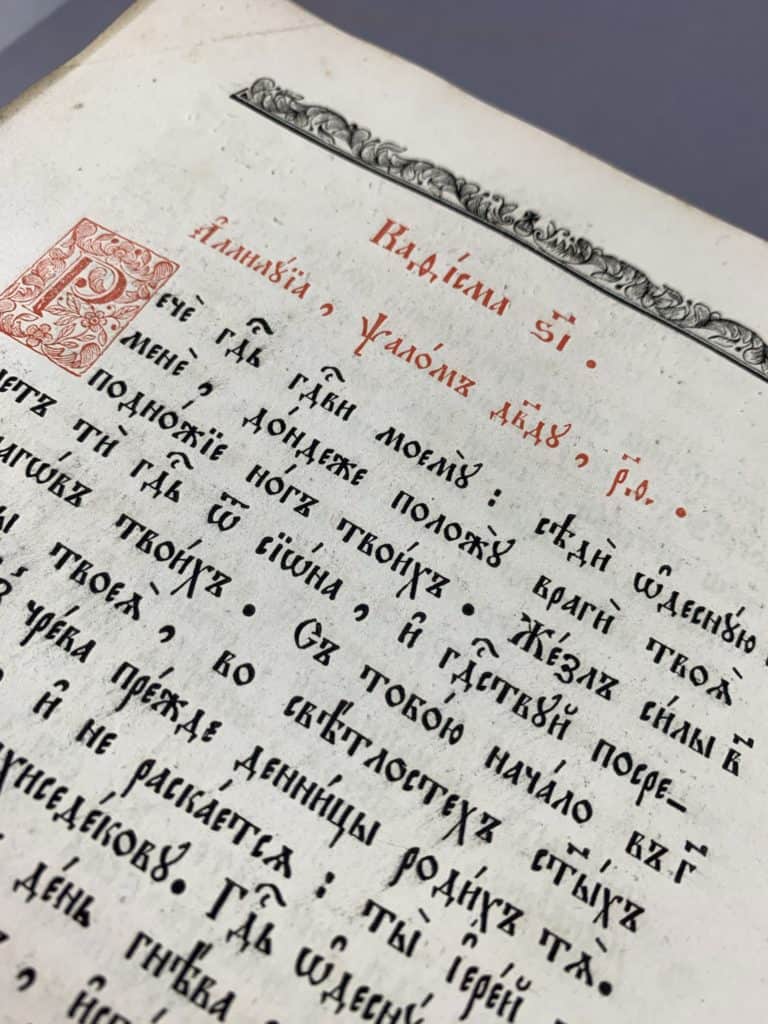 Каѳі́сма ѕ҃і .
А҆ллилꙋ́їа , Ѱало́мъ дв҃дꙋ , р҃.ѳ. .
Речѐ гдⷭ҇ь гдⷭ҇ви моемꙋ̀ : сѣдѝ ѡ҆деснꙋ́ю
менѐ , до́ндеже положꙋ̀ врагѝ твоѧ̀
подно́жїе но́гъ твои́хъ . Же́злъ си́лы
летъ тѝ гдⷭ҇ь ѿ сїѡ́на , и҆ гдⷭ҇ствꙋй посре-
рагѡ́въ твои́хъ . Съ тобо́ю нача́ло въ
ы твоеѧ̀ , во свѣ́тлостехъ ст҃ы́хъ
чре́ва пре́жде денни́цы роди́хъ тѧ̀.
и҆ не раска́етсѧ : ты̀ і҆ере́й
хиседе́ковꙋ. Гдⷭ҇ь ѡ҆деснꙋ́
де́нь гнѣ́ва